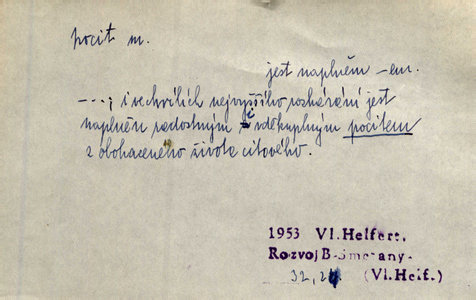 pocit m.
jest naplněm -em.
---; i ve chvílích nejvyššího rozhárání jest
naplněn radostným i vděkuplným pocitem
z obohaceného života citového.
1953 Vl. Helfert,
Rozvoj B. Smetany-
32, (Vl. Helf.)